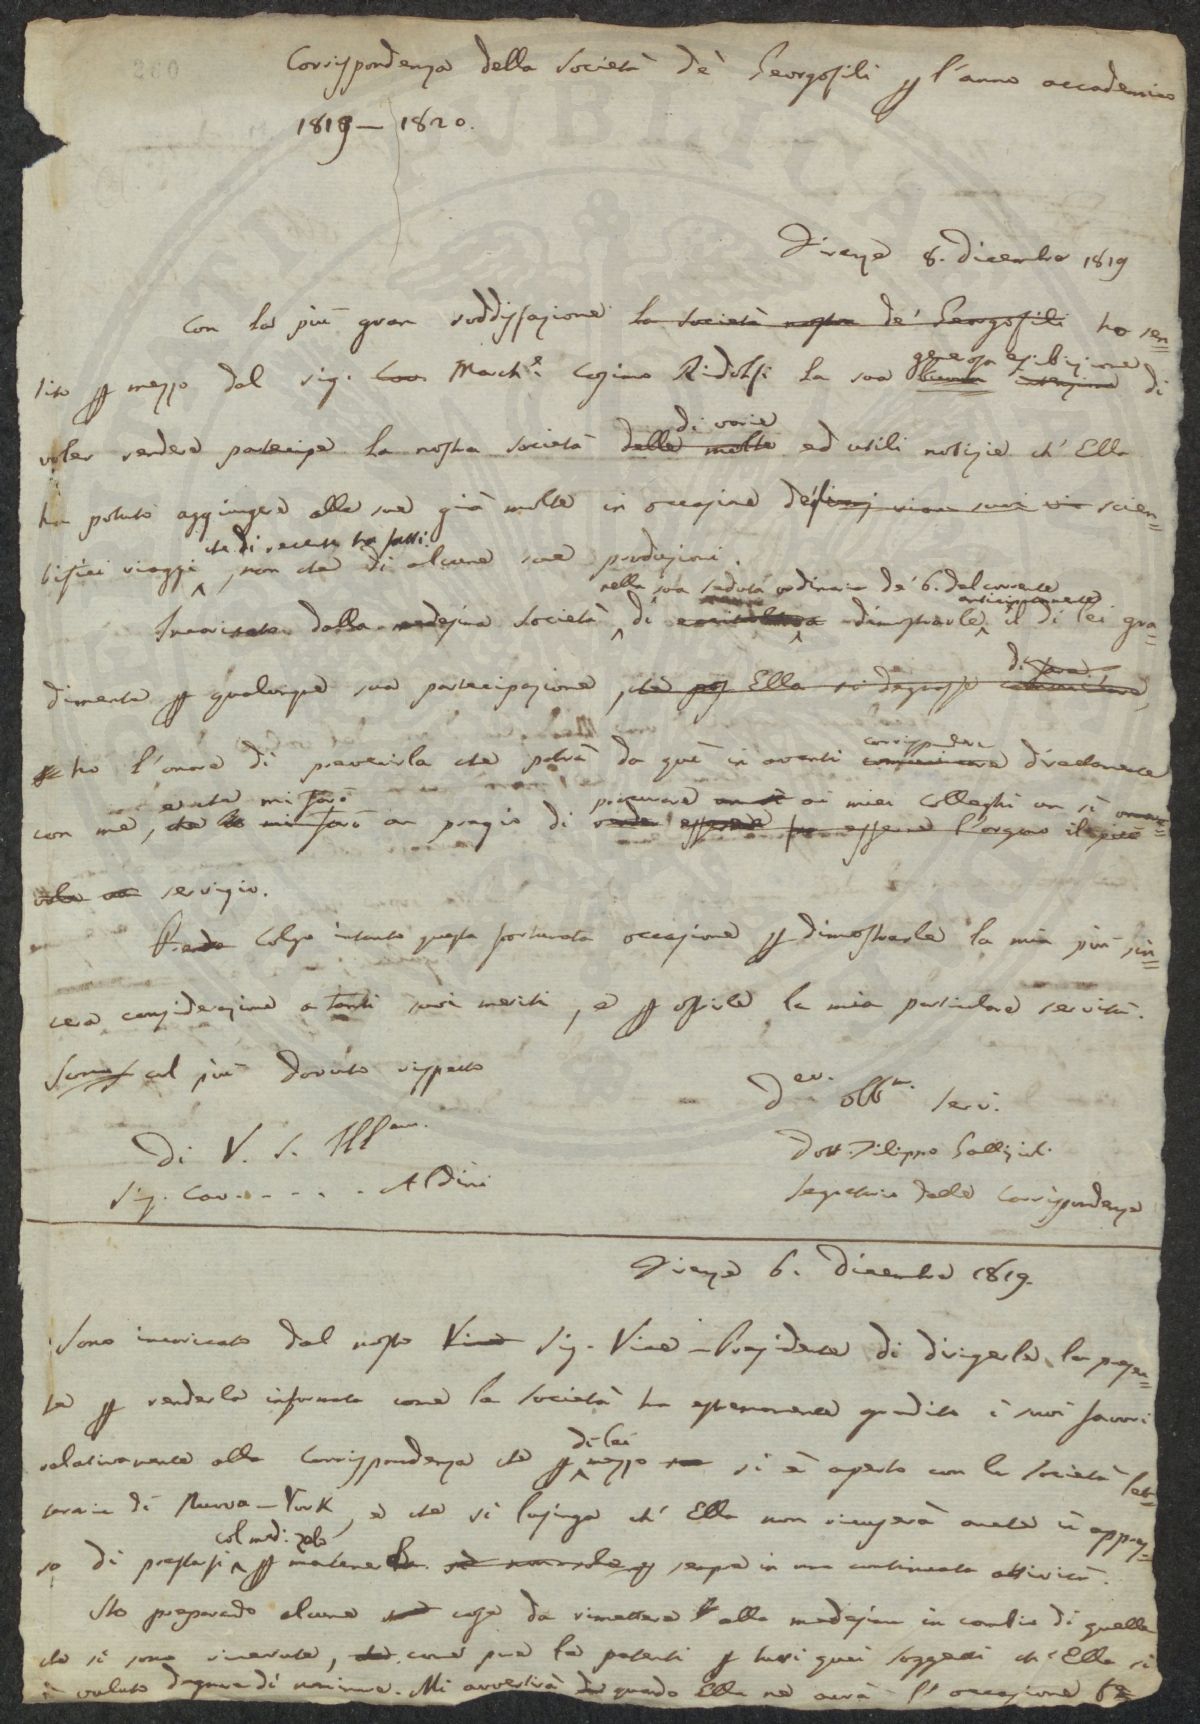 260
Corrispondenza della Società de' Georgofili p l'anno accademico
1819 — 1820.
Firenze 8. dicembre 1819
Con la più gran soddisfazione la società nostra de' Georgofili ho sen=
tito p mezzo del sig. Cav. March.e Cosimo Ridolfi la sua generosa esibizione di
voler rendere partecipe la nostra società delle molte di varie ed utili notizie ch' Ella
ha potuto aggiungere alle sue già molte in occasione de' suoi scien=
tifici viaggi che di recente ha fatti, non che di alcune sue produzioni.
Incaricato dalla medesima società nella sua seduta ordinaria de' 6. del corrente di dimostrarle anticipatamente il di lei gra=
dimento p qualunque sua partecipazione, che Ella si degnasse di fare,
ho l'onore di prevenirla che potrà da quì in avanti corrispondere direttamente
con me, che mi farò un pregio di procurare ai miei Colleghi un sì essere l'organo il più
servigio.
Colgo intanto questa fortunata occasione p dimostrarle la mia più sin=
cera considerazione a tanti suoi meriti, e p offrirle la mia particolare servitù.
Sono col più dovuto rispetto
Di V. S. Ill.ma
Sig. Cav. . . . . . Aldini
Dev. Obb. Serv.
Dott. Filippo Gallizioli
Segretario delle Corrispondenze
Firenze 6. dicembre 1819.
Sono incaricato dal nostro Vice Sig. Vice-Presidente di dirigerle la presen=
te p renderla informata come la società ha estremamente gradito i suoi favori
relativamente alla Corrispondenza che p di lei mezzo si è aperta con la società let=
teraria di Nuova-York, e che si lusinga ch' Ella non ricuserà anche in appres=
so di prestarsi col med. zelo p mantenerla sempre in una continuata attività.
Sto preparando alcune cose da rimettere alla medesima in cambio di quelle
che si sono ricevute, come pure le patenti p tutti quei soggetti ch' Ella si
è voluto degnare di nominare. Mi avvertirà quando Ella ne avrà l'occasione